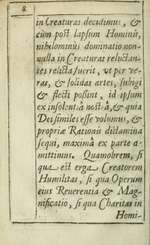 8
in Creaturas decidimus, &
cùm post lapsum Hominis,
nihilominùs dominatio non-
nulla in Creaturas reluctan-
tes relicta fuerit, ut per ve-
ras, & solidas artes, subigi
& flecti possint, id ipsum
ex insolentiâ nostrâ, & quia
Dei similes esse volumus, &
propriæ Rationis dictamina
sequi, maximâ ex parte a-
mittimus. Quamobrem, si
qua est erga Creatorem
Humilitas, si qua Operum
eius Reuerentia & Mag-
nificatio, si qua Charitas in
Homi-